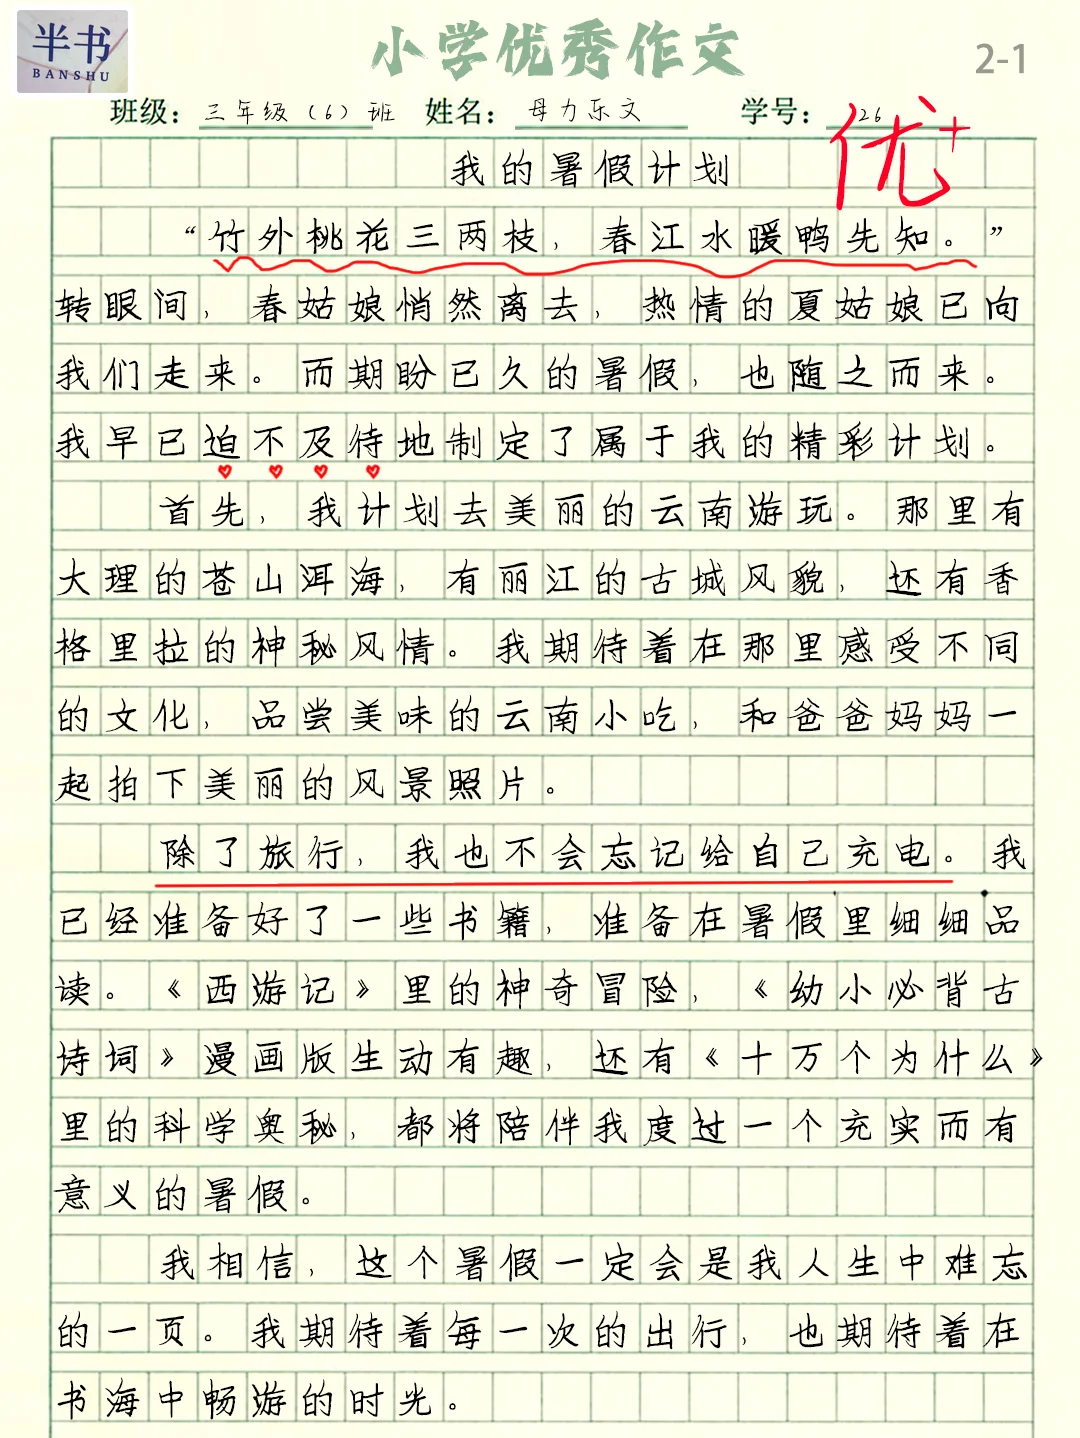 半书
BANSHU
小学优秀作文
2-1
班级：三年级（6）班 姓名：母力乐文 学号：26
优+
我的暑假计划
“竹外桃花三两枝，春江水暖鸭先知。”
转眼间，春姑娘悄然离去，热情的夏姑娘已向
我们走来。而期盼已久的暑假，也随之而来。
我早已迫不及待地制定了属于我的精彩计划。
首先，我计划去美丽的云南游玩。那里有
大理的苍山洱海，有丽江的古城风貌，还有香
格里拉的神秘风情。我期待着在那里感受不同
的文化，品尝美味的云南小吃，和爸爸妈妈一
起拍下美丽的风景照片。
除了旅行，我也不会忘记给自己充电。我
已经准备好了一些书籍，准备在暑假里细细品
读。《西游记》里的神奇冒险，《幼小必背古
诗词》漫画版生动有趣，还有《十万个为什么》
里的科学奥秘，都将陪伴我度过一个充实而有
意义的暑假。
我相信，这个暑假一定会是我人生中难忘
的一页。我期待着每一次的出行，也期待着在
书海中畅游的时光。